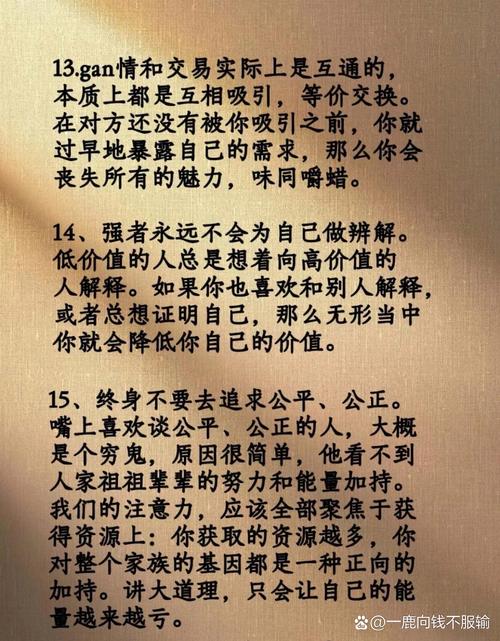 13.gan情和交易实际上是互通的，
本质上都是互相吸引，等价交换。
在对方还没有被你吸引之前，你就
过早地暴露自己的需求，那么你会
丧失所有的魅力，味同嚼蜡。
14、强者永远不会为自己做辨解。
低价值的人总是想着向高价值的
人解释。如果你也喜欢和别人解释，
或者总想证明自己，那么无形当中
你就会降低你自己的价值。
15、终身不要去追求公平、公正。
嘴上喜欢谈公平、公正的人，大概
是个穷鬼，原因很简单，他看不到
人家祖祖辈辈的努力和能量加持。
我们的注意力，应该全部聚焦于获
得资源上：你获取的资源越多，你
对整个家族的基因都是一种正向的
加持。讲大道理，只会让自己的能
量越来越亏。
@一鹿向钱不服输